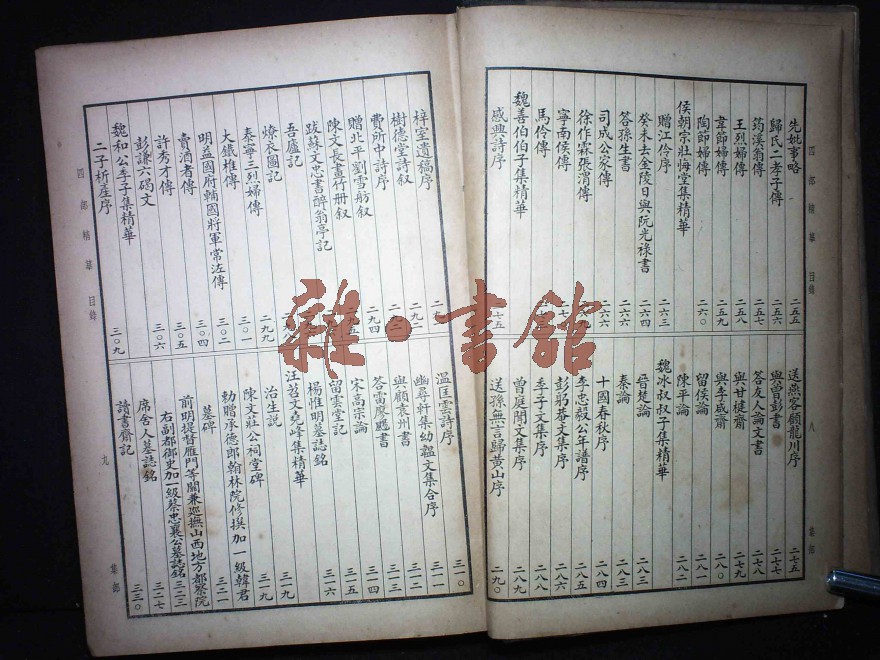 四部精華 目錄
八
集部
先妣事略 二五五
歸氏二孝子傳 二五六
筠溪翁傳 二五七
王烈婦傳 二五八
韋節婦傳 二五九
陶節婦傳 二六〇
侯朝宗壯悔堂集精華
贈江伶序 二六三
癸未去金陵日與阮光祿書 二六四
答孫生書 二六六
司成公家傳 二六六
徐作霖張渭傳
寧南侯傳
馬伶傳
魏善伯伯子集精華
感興詩序
送燕客顧龍川序 二七五
與曾彭書 二七七
答友人論文書 二七八
與甘健齋 二七九
與李咸齋 二八〇
留侯論 二八一
陳平論 二八二
魏冰叔叔子集精華
晉楚論 二八三
秦論 二八三
十國春秋序 二八四
李忠毅公年譜序 二八五
彭躬菴文集序 二八六
季子文集序 二八八
曾庭聞文集序 二八九
送孫無言歸黃山序 二九〇
梓室遺稿序
樹德堂詩敘
費所中詩序
贈北平劉雪舫敘
陳文長畫竹册敘
跋蘇文忠書醉翁亭記
吾廬記
燎衣圖記 二九九
泰寧三烈婦傳 三〇一
大鐵椎傳 三〇二
明益國府輔國將軍常汸傳 三〇四
賣酒者傳 三〇五
許秀才傳 三〇六
彭謙六碣文
魏和公季子集精華
二子析產序 三〇九
溫匡雲詩序 三一〇
幽尋軒集幼蘊文集合序 三一一
與顧袁州書 三一二
答雷慶廳書 三一三
宋高宗論 三一四
留雲堂記 三一五
楊惟明墓誌銘 三一六
汪苕文堯峰集精華
治生說 三一九
陳文莊公祠堂碑 三一九
勅贈承德郎翰林院修撰加一級韓君墓碑 三二一
前明提督雁門等關兼巡撫山西地方都察院右副都御史加一級蔡忠襄公墓誌銘 三二三
席舍人墓誌銘 三二七
讀書齋記 三三〇
四部精華 目錄
九
集部
雜·書館